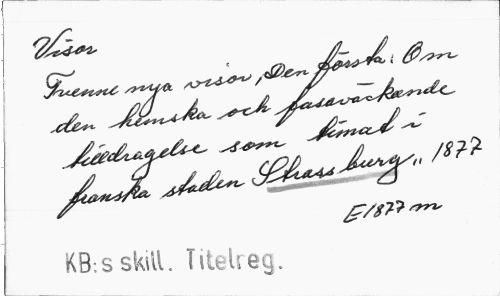 Visor
Tvenne nya visor, Den första: Om
den hemska och fasaväckande
tilldragelse som timat i
franska staden Strassburg,, 1877
E1877 m
KB:s skill. Titelreg.